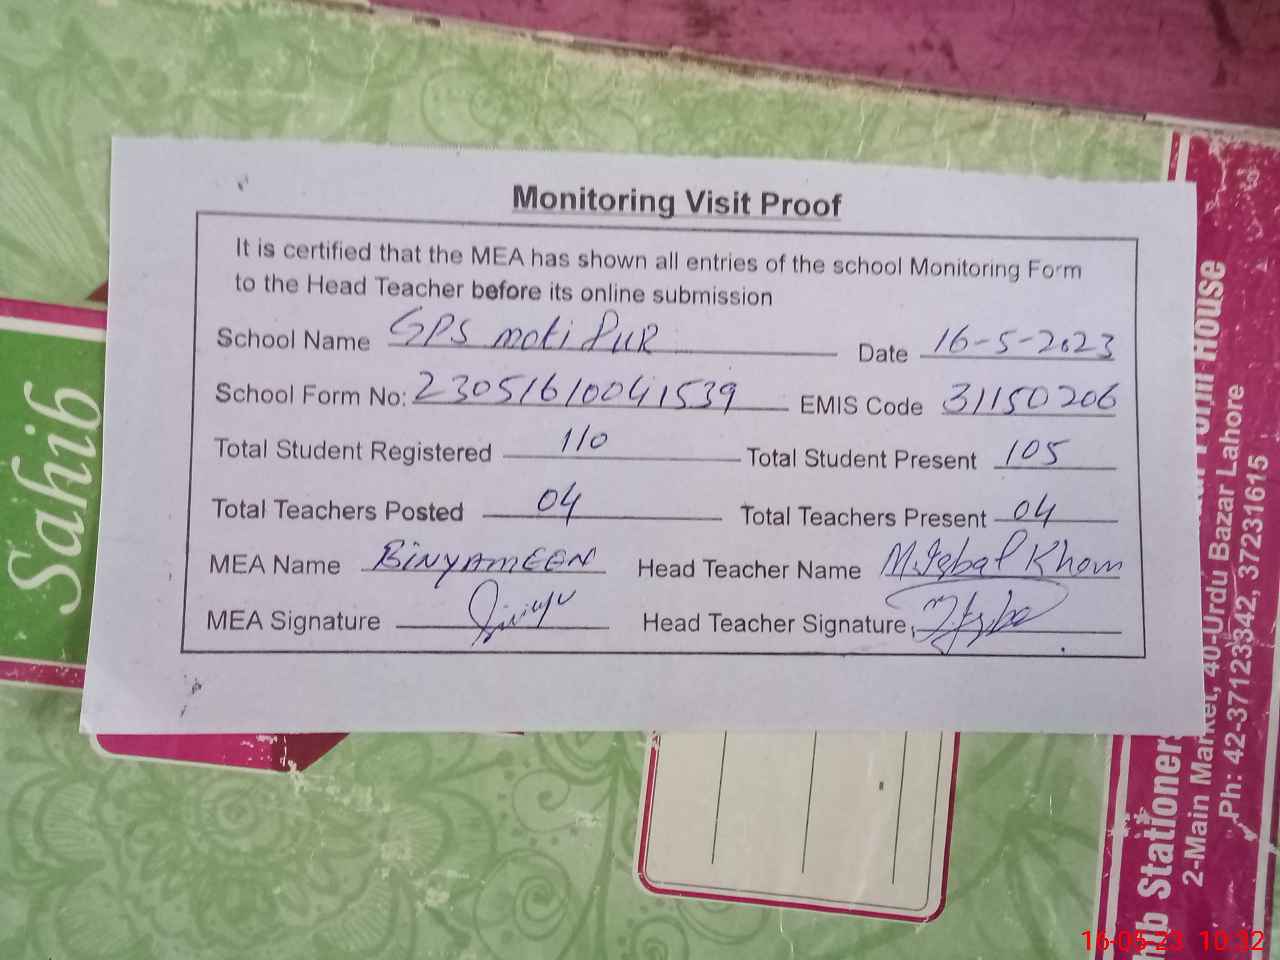 Monitoring Visit Proof
It is certified that the MEA has shown all entries of the school Monitoring Form
to the Head Teacher before its online submission
School Name GPS moti PUR Date 16-5-2023
School Form No: 23051610041539 EMIS Code 31150206
Total Student Registered 110 Total Student Present 105
Total Teachers Posted 04 Total Teachers Present 04
MEA Name BiNYAMEEN Head Teacher Name M.Iqbal Khan
MEA Signature Head Teacher Signature
Sahib
Stationers
House
2-Main Market, 40-Urdu Bazar Lahore
Ph: 42-37123342, 37231615
16-05-23 10:32